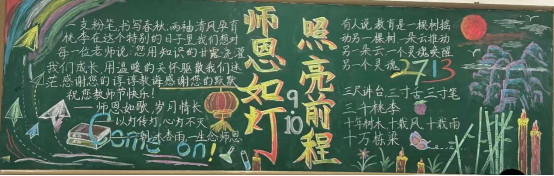 一支粉笔,书写春秋,两袖清风,孕育
桃李在这个特别的日子里我们想对
每一位老师说:您用知识的甘露浇灌
我们成长,用温暖的关怀驱散我们迷
茫感谢您的谆谆教诲感谢您的默默
祝您教师节快乐!
——师恩如歌,岁月情长
以灯传灯,心灯不灭
一生念师恩
Come on!
师恩如灯
9
10
照亮前程
有人说:教育是一棵树摇
动另一棵树一朵云推动
另一朵云一个灵魂唤醒
另一个灵魂
2713
三尺讲台 三寸舌 三寸笔
三千桃李
十年树木 十载风 十载雨
十万栋梁